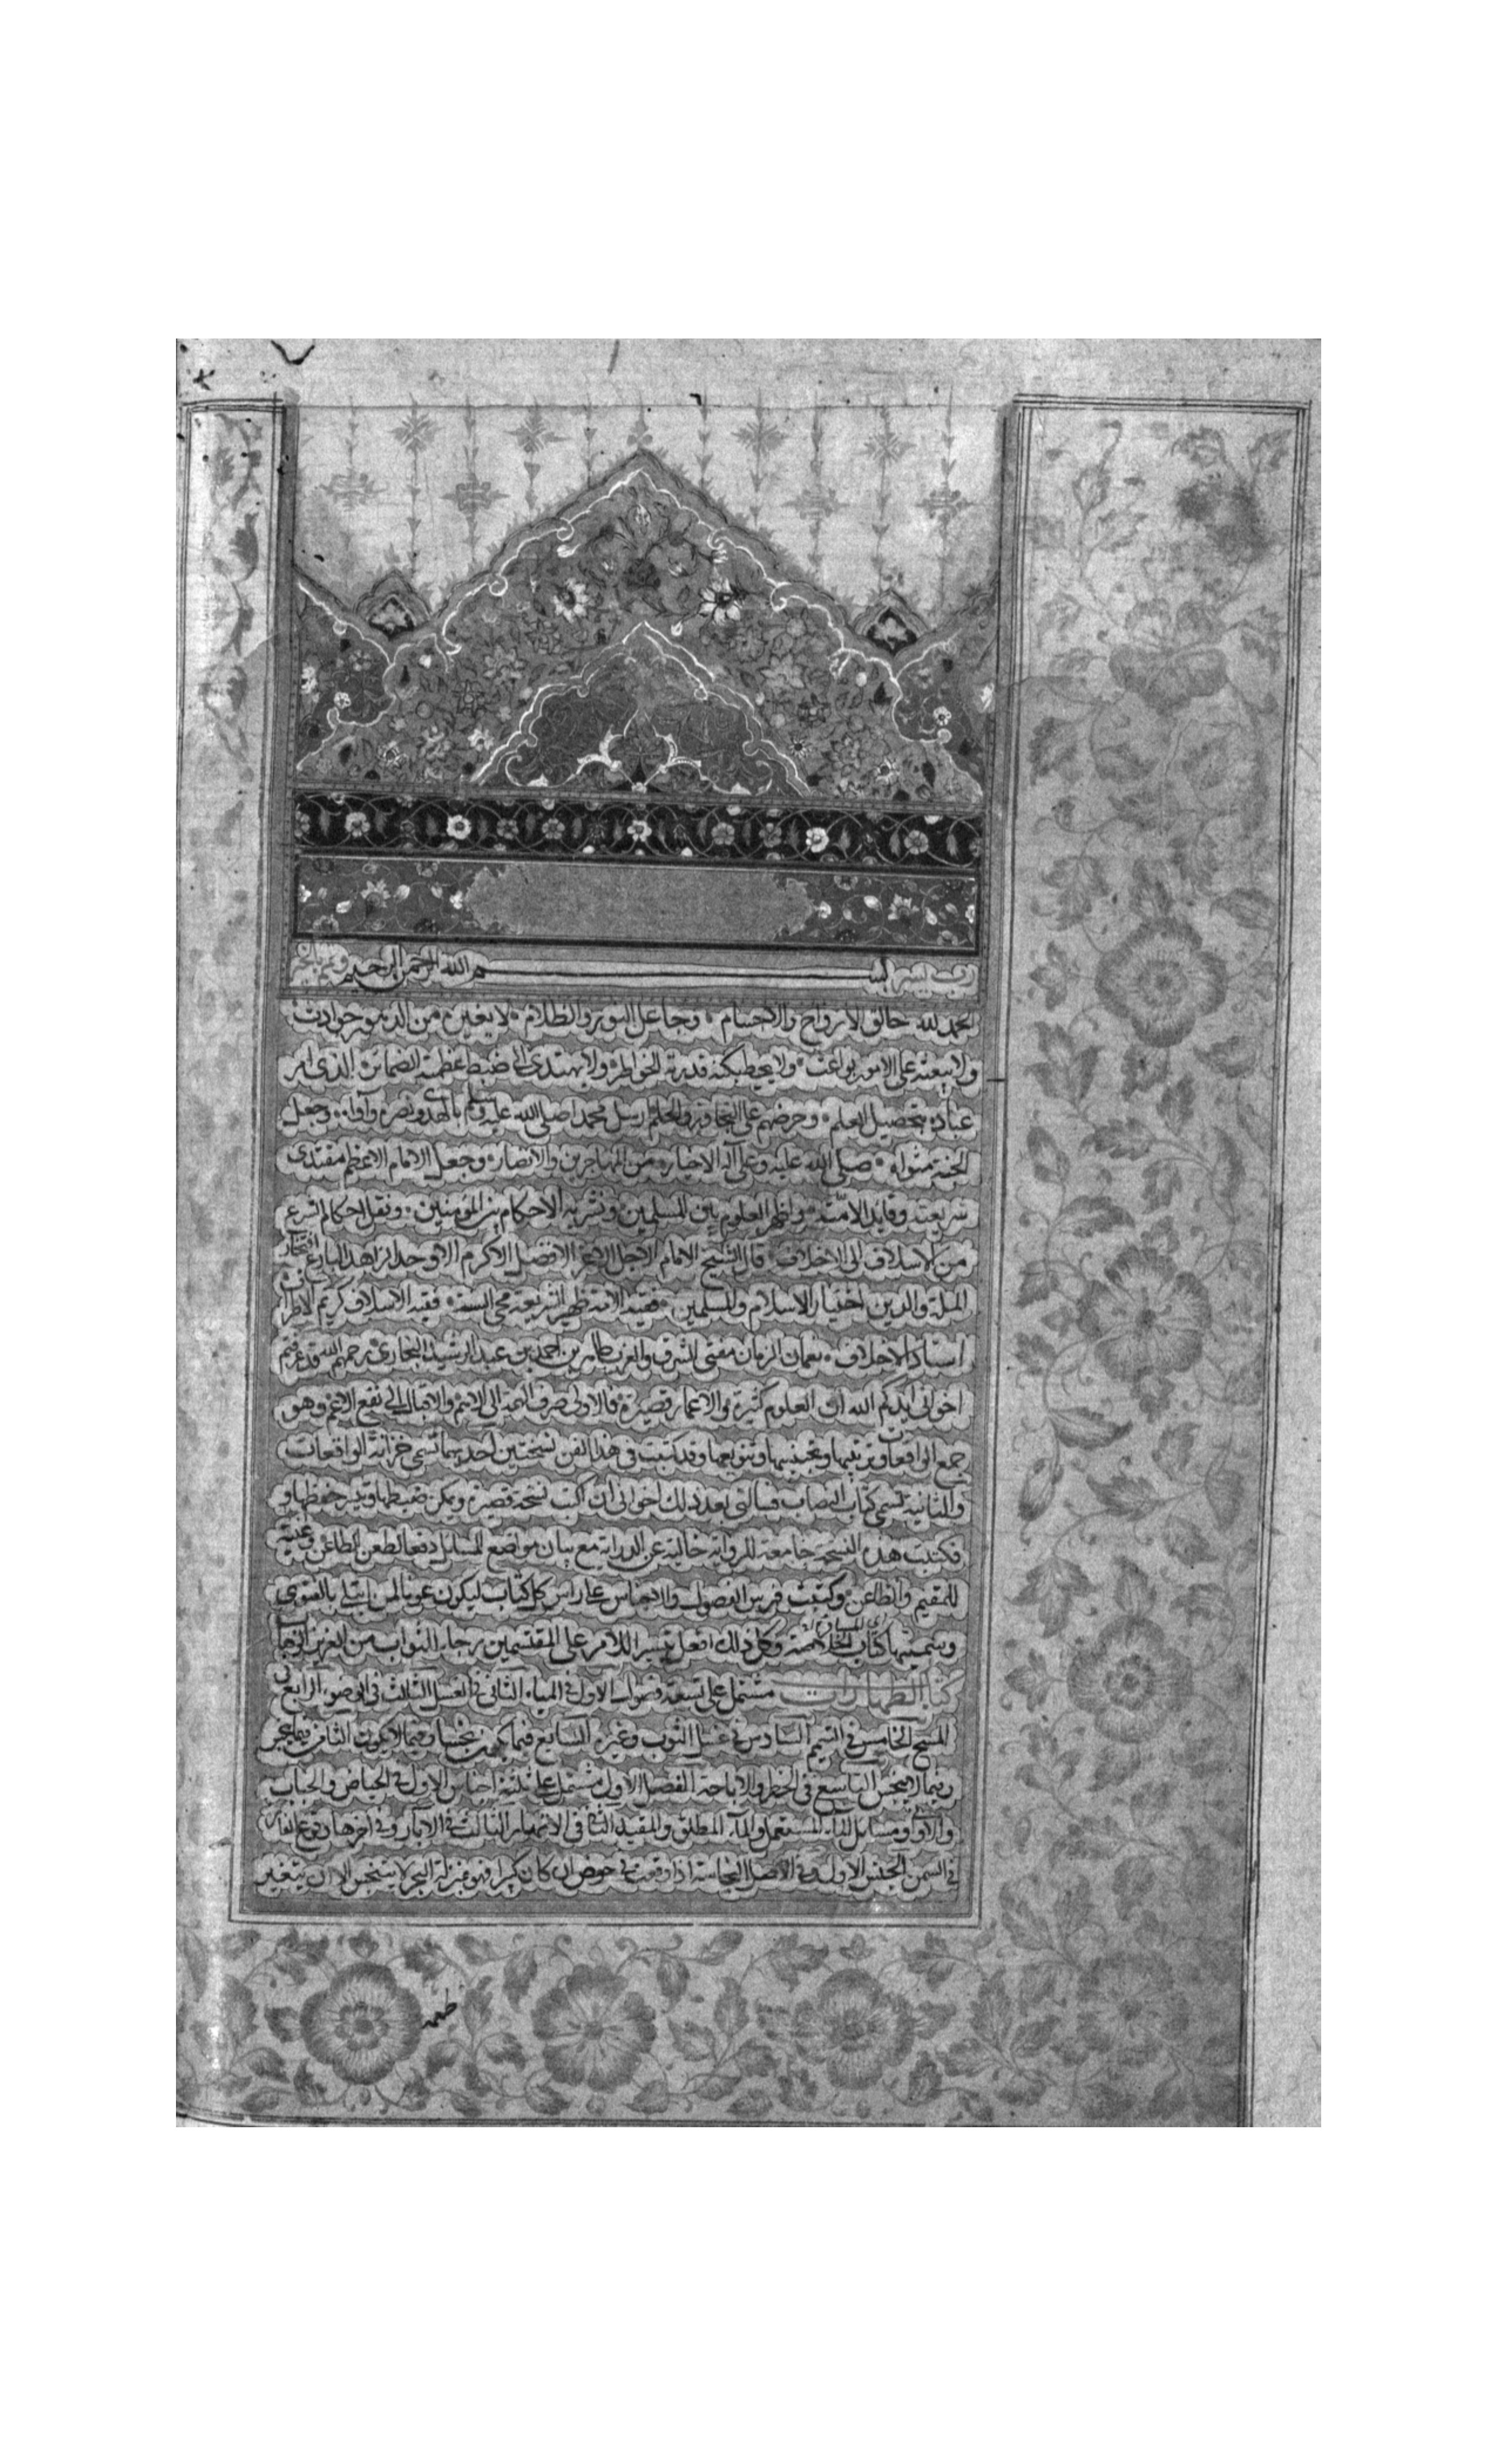 رب يسر بسم الله الرحمن الرحيم وتمم بالخير
الحمد لله خالق الارواح والاجسام وجاعل النور والظلام لا يغيره من الدهور حوادث
ولا يبعثه على الامور بواعث ولا يحيط بكنه قدرته الخواطر ولا يهتدى الى ضبط عظمته الضمائر الذى امر
عباده بتحصيل العلم وحرضهم على والحلم ارسل محمدا صلى الله عليه وسلم بالهدى ونصره وآواه وجعل
الجنة مثواه صلى الله عليه وعلى آله الاخيار من المهاجرين والانصار وجعل الامام الاعظم مقتدى
شريعته وقايد الامة واظهر العلوم بين المسلمين ونشر به الاحكام بين المؤمنين ونقل احكام الشرع
من الاسلاف الى الاخلاف قال الشيخ الامام الاجل الاعز الافضل الاكرم الاوحد الزاهد البارع افتخار
الملة والدين اختيار الاسلام والمسلمين فقيه الامة ظهير الشريعة محى السنة فقيد الاسلاف كريم الاطراف
استاد الاخلاف نعمان الزمان مفتى الشرق والغرب طاهر بن احمد بن عبد الرشيد البخارى رحمهم الله قد عرفتم
اخوانى ايدكم الله ان العلوم كثيرة والاعمار قصيرة فالاولى صرف الهمة الى الاهم والاقبال الى نفع الاعم وهو
جمع الواقعات وترتيبها وتجنيسها وتنويعها وقد كتبت فى هذا الفن نسختين احديهما تسمى خزانة الواقعات
والثانية تسمى كتاب النصاب فسألنى بعد ذلك اخوانى ان اكتب نسخة قصيرة ويمكن ضبطها ويتيسر حفظها و
فكتبت هذه النسخة جامعة للرواية خالية عن الدراية مع بيان مواضع المسايل دفعا لطعن الطاعن وغنية
للمقيم والظاعن وكتبت فهرس الفصول والاجناس على راس كل كتاب ليكون عونا لمن ابتلى بالفتوى
وسميتها كتاب الخلاصة وكل ذلك افعل تيسيرا للامر على المقتبسين رجاء الثواب من العزيز الوهاب
كتاب الطهارات مشتمل على تسعة فصول الاول فى المياه الثانى فى الغسل الثالث فى الوضوء الرابع فى
المسح الخامس فى التيمم السادس فى غسل الثوب وغيره السابع فيما يكون نجسا وفيما لا يكون الثامن فيما ينجس
وفيما لا ينجس التاسع فى الحظر والاباحة الفصل الاول مشتمل على ثلثة اجناس الاول فى الحياض والجباب
والاوانى ومسائل الماء المستعمل والماء المطلق والمقيد الثانى فى الانهار الثالث فى الآبار وفى آخرها
فى السمن الجنس الاول فى الاصل النجاسة اذا وقعت فى حوض ان كان كبيرا فهو بمنزلة البحر لا يتنجس الا ان يتغير